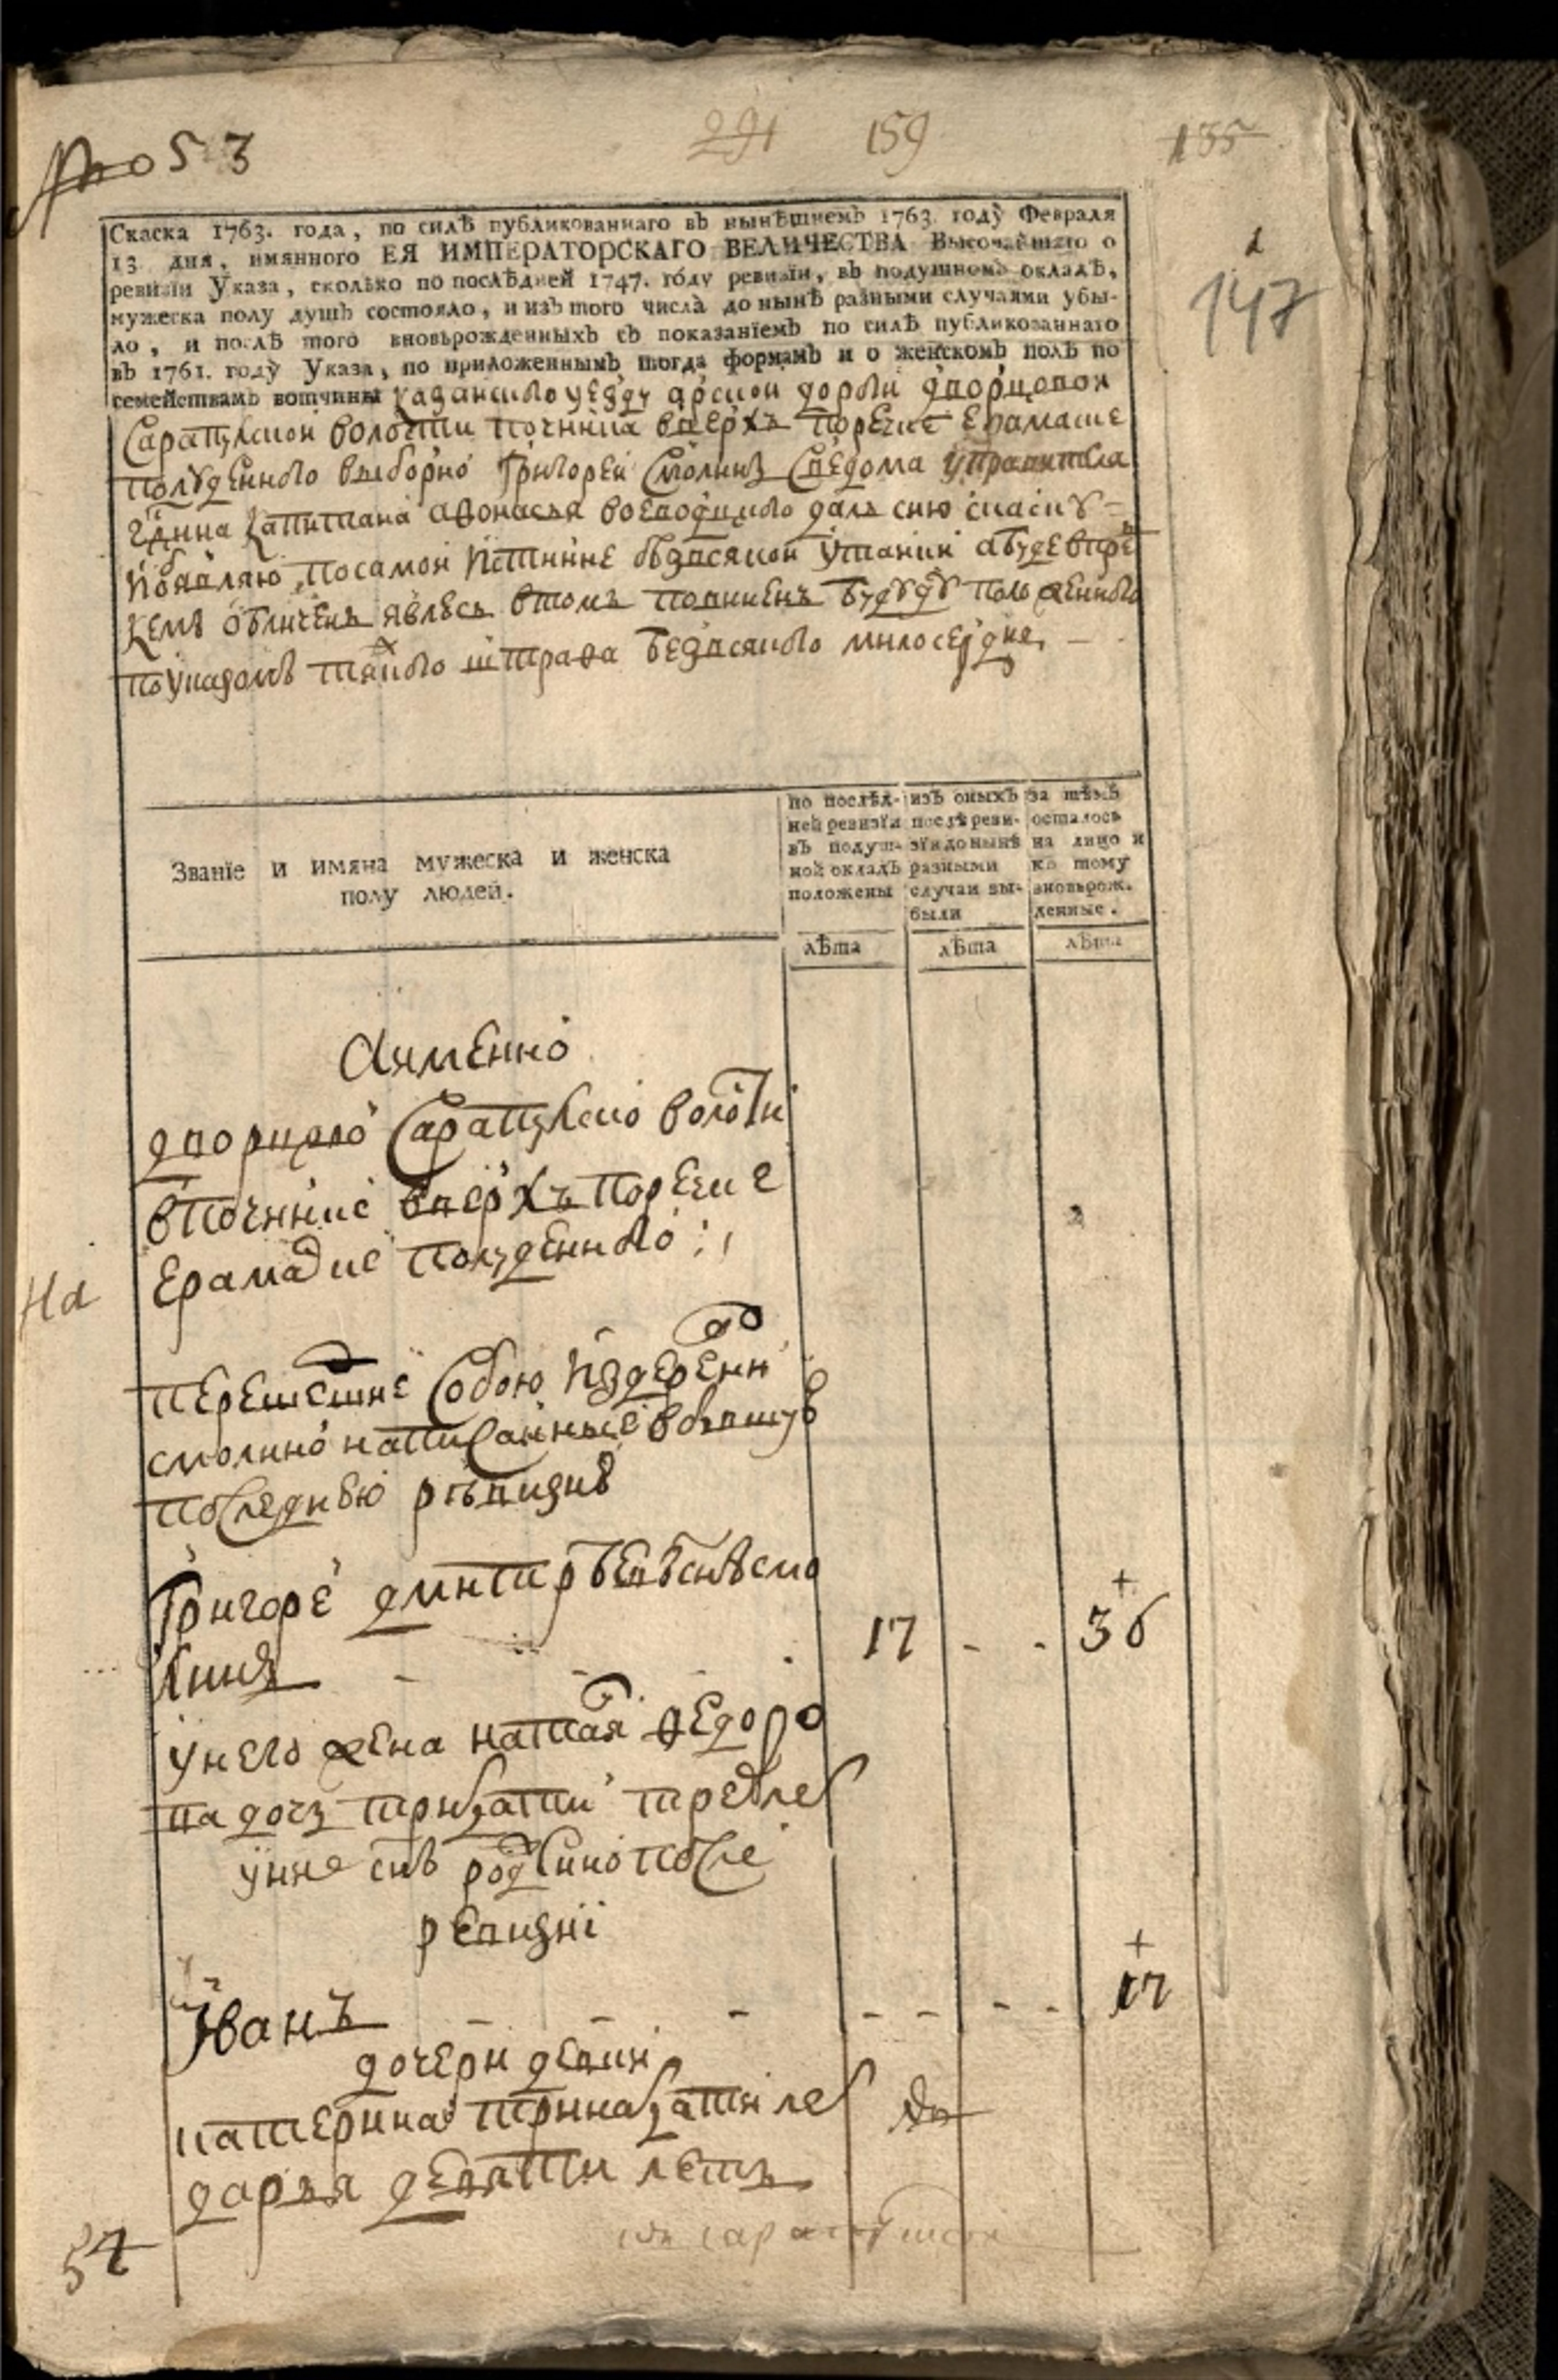 № 53
291 159 135
147
Скаска 1763. года, по силѣ публикованнаго въ нынѣшнемъ 1763. году Февраля
13 дня, имянного ЕЯ ИМПЕРАТОРСКАГО ВЕЛИЧЕСТВА Высочайшаго о
ревизїи Указа, сколько по послѣдней 1747. году ревизїи, въ подушномъ окладѣ,
мужеска полу душъ состояло, и изъ того числа до нынѣ разными случаями убы-
ло, и послѣ того вновьрожденныхъ съ показанїемъ по силѣ публикованнаго
въ 1761. году Указа, по приложеннымъ тогда формамъ и о женскомъ полѣ по
семействамъ вотчины казанского уезду арской дороги дворцовой
Сарапулской волости починка вверхъ по речке Ерамаше
полуденного выборно Григорей Смолинъ Сведома управителя
гдина капитана афонасья воеводцкого далъ сию скаску
по самой истинне безвсякой утайки
кемъ обличенъ явлюсь втомъ повиненъ буду положенного
поуказомъ тяжкого штрафа безвсякого милосердия
Званїе и имяна мужеска и женска
полу людей.
по послѣд-
ней ревизїи
въ подуш-
ной окладъ
положены
изъ оныхъ
послѣ реви-
зїи до нынѣ
разными
случаи вы-
были
за тѣмъ
осталось
на лицо и
къ тому
вновьрож-
денные.
лѣта лѣта лѣта
Аимѣнно
дворцово Сарапулско волости
впочинке вверхъ поречке
Ерамашке полуденного
На
перешедшие Собою издеревни
смолино написанные вбывшую
последнюю ревизию
Григоре дмитревъ снъ смо
линъ 17 - - 36
унего жена наталя федоро
ва дочь трицати трех лет
унихъ снъ родился после
ревизиї
Иванъ - - - - - - - 12
дочери девки
катерина тринацати лет
дарья девяти летъ
54